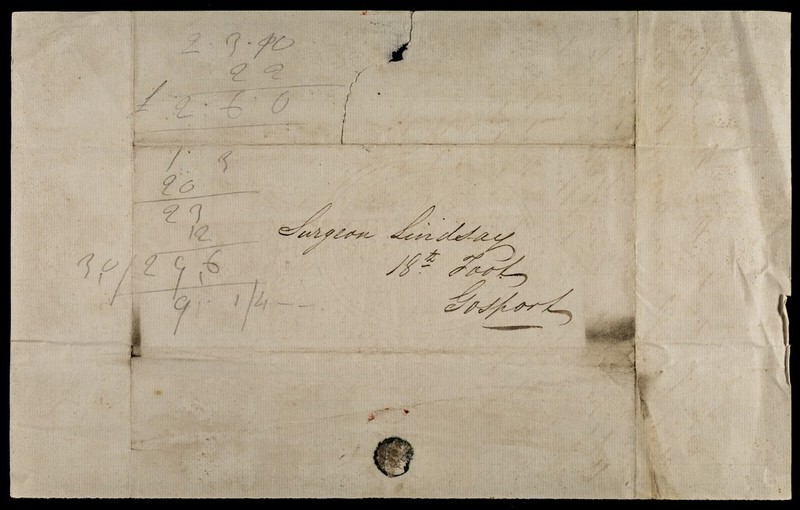 2 . 3 . 10
2 2
£ 2 . 6 . 0
1 . 3
20
23
12
30 / 2 9 6
9 . 1/4
Surgeon Lindsay
18th Foot
Gosport